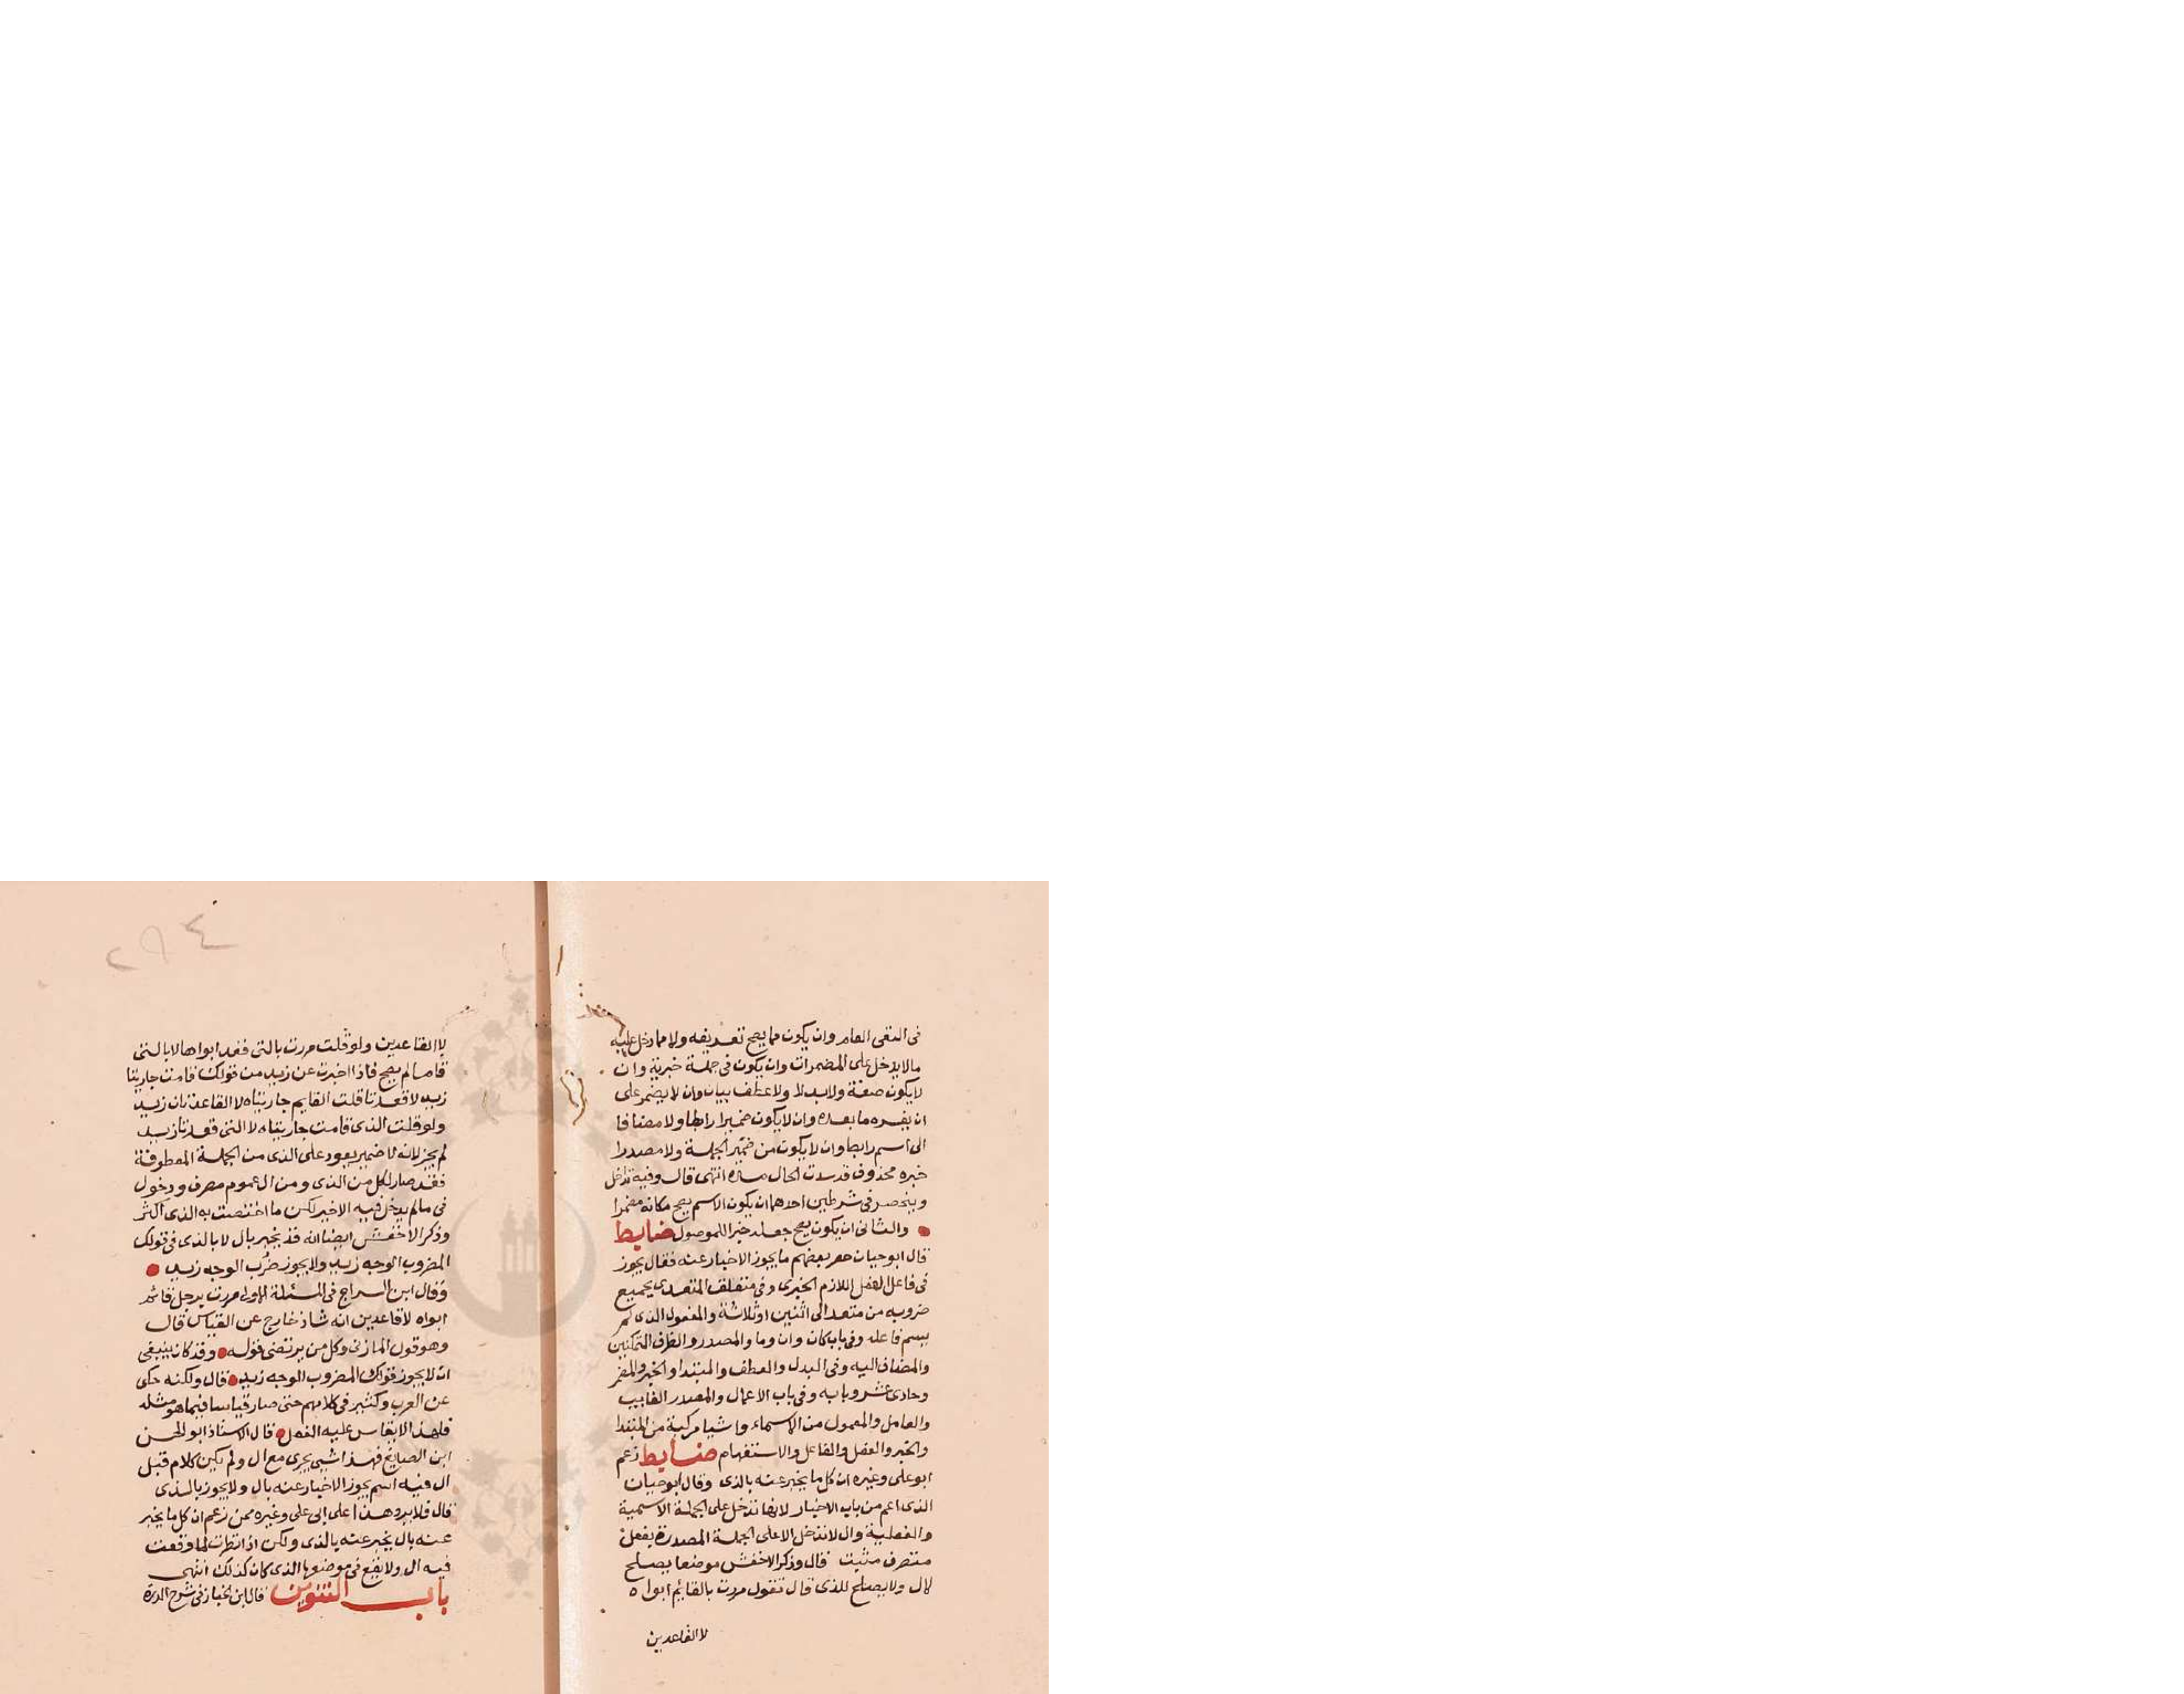 في النفي العام وان يكون مما يصح تعريفه ولا مما دخل عليه
مالا يدخل على المضمرات وان يكون في جملة خبرية وان
لا يكون صفة ولا بدلا ولا عطف بيان وان لا يضمر على
ان يفسره ما بعده وان لا يكون ضميرا رابطا ولا مضافا
الى اسم رابط وان لا يكون من ضمير الجملة ولا مصدرا
خبره محذوف قد سدت الحال مسده انتهى قال وفيه تداخل
وينحصر في شرطين احدهما ان يكون الاسم يصح مكانه مضمرا
والثاني ان يكون يصح جعله خبرا للموصول ضابط
قال ابو حيان حصر بعضهم ما يجوز الاخبار عنه فقال يجوز
في فاعل الفعل اللازم الخبري وفي متعلق المتعدى بجميع
ضروبه من متعد الى اثنين او ثلاثة والمفعول الذى لم
يسم فاعله وفي باب كان وان وما والمصدر والظرف المتمكنين
والمضاف اليه وفي البدل والعطف والمبتدا والخبر والمضمر
وحادى عشر وبابه وفي باب الاعمال والمصدر الغايب
والعامل والمعمول من الاسماء واشيا مركبة من المبتدا
والخبر والفعل والفاعل والاستفهام ضابط زعم
ابو على وغيره ان كل ما يخبر عنه بالذى وقال ابو حيان
الذى اعم من باب الاخبار لانها تدخل على الجملة الاسمية
والفعلية وال لا تدخل الا على الجملة المصدرة بفعل
متصرف مثبت قال وذكر الاخفش موضعا يصلح
لال ولا يصلح للذى قال تقول مررت بالقايم ابواه
لا القاعدين
٢٩٤
لا القاعدين ولو قلت مررت بالتي قعد ابواها لا بالتي
قاما لم يصح فاذا اخبرت عن زيد من قولك قامت جاريتا
زيد لا قعدتا قلت القايم جاريتاه لا القاعدتان زيد
ولو قلت الذى قامت جاريتاه لا التي قعدتا زيد
لم يجز لانه لا ضمير يعود على الذى من الجملة المعطوفة
فقد صار لكل من الذى ومن ال عموم تصرف ودخول
في ما لم يدخل فيه الاخير لكن ما اختصت به الذى اكثر
وذكر الاخفش ايضا انه قد يخبر بال لا بالذى في قولك
المضروب الوجه زيد ولا يجوز ضرب الوجه زيد
وقال ابن السراج في المسئلة الاولى مررت برجل قائم
ابواه لا قاعدين انه شاذ خارج عن القياس قال
وهو قول المازنى وكل من يرتضى قوله وقد كان ينبغى
ان لا يجوز قولك المضروب الوجه زيد قال ولكنه حكى
عن العرب وكثير في كلامهم حتى صار قياسا فيما هو مثله
فلهذا لا يقاس عليه الفعل قال الاستاذ ابو الحسن
ابن الصايغ فهذا شيى يجرى مع ال ولم يكن كلام قبل
ال فيه اسم يجوز الاخبار عنه بال ولا يجوز بالذى
قال فلا يرد هذا على ابى على وغيره ممن زعم ان كل ما يخبر
عنه بال يخبر عنه بالذى ولكن اذا نظرت لما وقعت
فيه ال ولا يقع في موضعها الذى كان كذلك انتهى
باب التنوين قال ابن الخباز في شرح الدرة